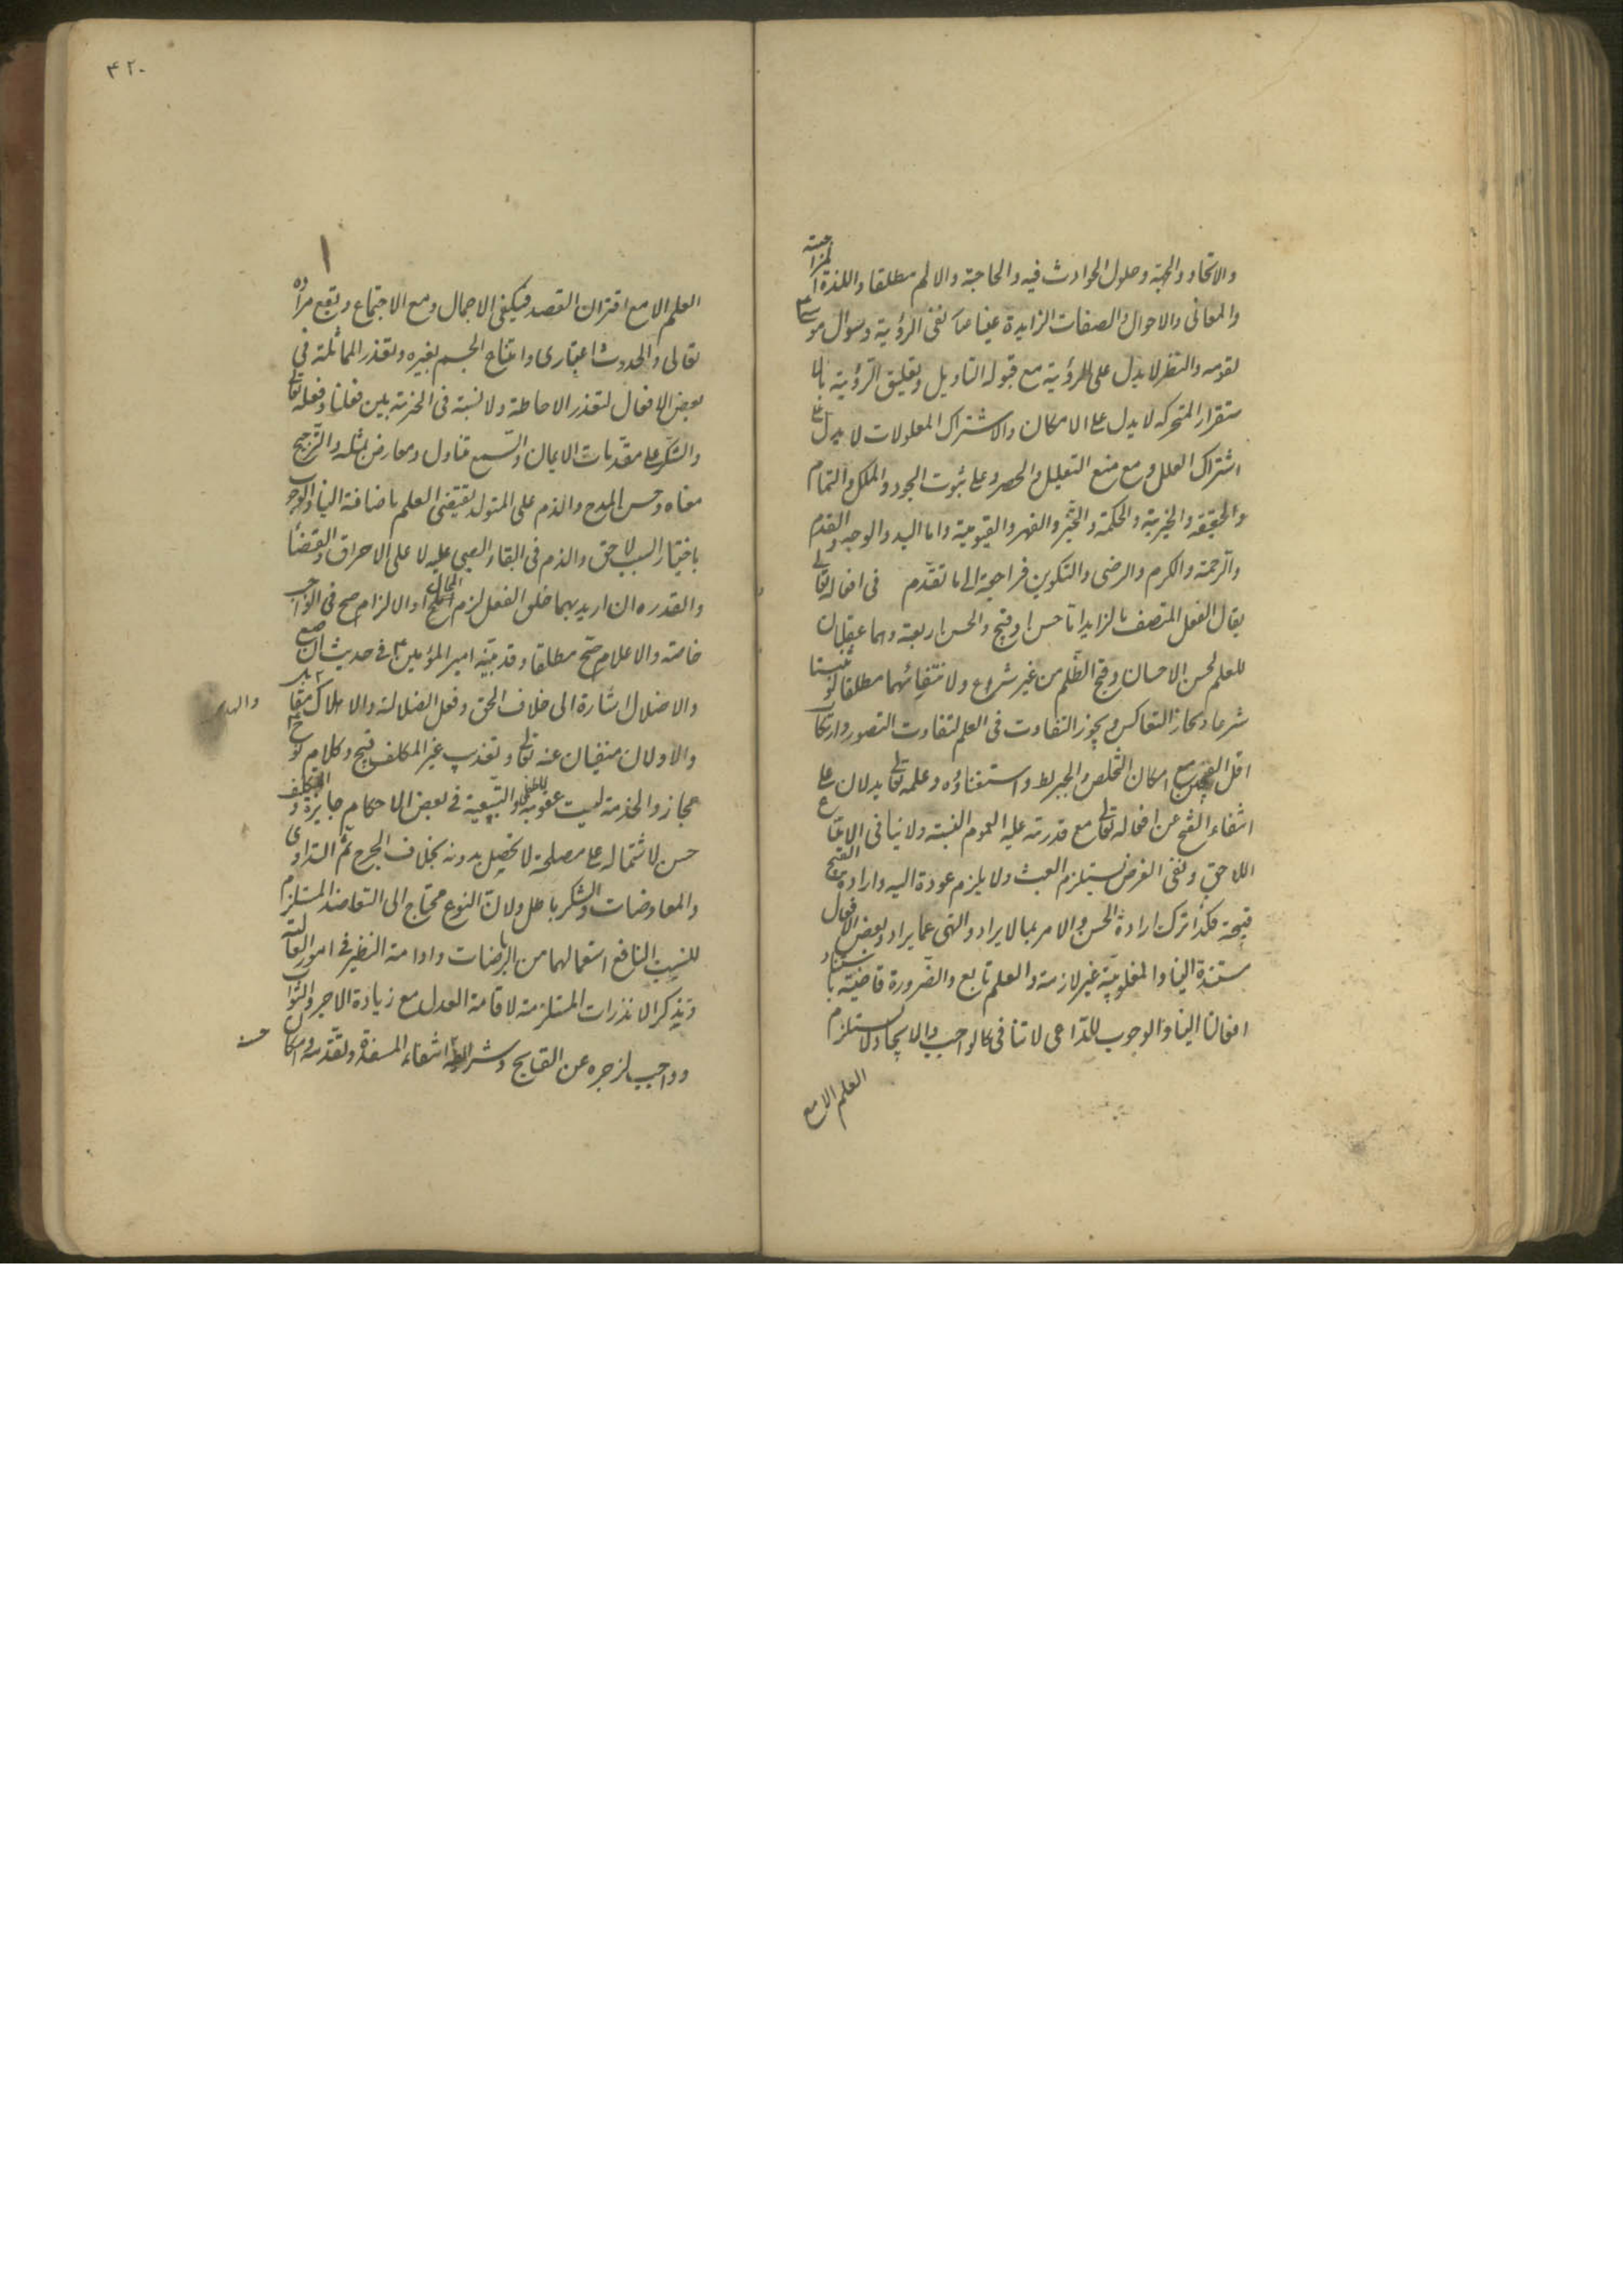 والاتحاد والجهة وحلول الحوادث فيه والحاجة والالم مطلقا واللذة المزاجية
والمعانى والاحوال والصفات الزايدة عينا عنا نفى الرؤية وسؤال موسى ع
لقومه والنظر لا يدل على الرؤية مع قبوله التاويل وتعليق الرؤية باﻻ
ستقرار المتحركه لا يدل على الامكان والاشتراك المعلولات لا يدل على
اشتراك العلل مع منع التعليل والحصر وعلى ثبوت الجود والملك والتمام
والحقيقة والخيرية والحكمة والتجبر والقهر والقيومية واما اليد والوجه والقدم
والرحمة والكرم والرضى والتكوين فراجعة الى ما تقدم فى افعاله تعالى
يقال الفعل المتصف بالزايد اما حسن او قبيح والحسن اربعة وهما عقليان
للعلم بحسن الاحسان وقبح الظلم من غير شرع ولانتفائهما مطلقا لو ثبتا
شرعا ولجاز التعاكس ويجوز التفاوت فى العلم لتفاوت التصور وارتكاب
اقل القبيحين مع امكان التخلص والجبر بط واستغناؤه وعلمه تعالى يدلان على
انتفاء القبح عن افعاله تعالى مع قدرته عليه لعموم النسبة ولا ينافى الامتناع
اللاحق ونفى الغرض يستلزم العبث ولا يلزم عوده اليه وارادة القبيح
قبيحة فكذا ترك ارادة الحسن والامر بما لا يراد والنهى عما يراد وبعض الافعال
مستندة الينا والمغلوبية غير لازمة والعلم تابع والضرورة قاضية باستناد
افعالنا الينا والوجوب للداعى لا تنافى كالواجب والايجاد لا يستلزم
العلم الا مع
٤٢٠
العلم الا مع اقتران القصد فيكفى الاجمال ومع الاجتماع وتقع مراده
تعالى والحدوث اعتبارى وامتناع الجسم بغيره وتعذر المماثلة فى
بعض الافعال لتعذر الاحاطة ولا نسبة فى الخيرية بين فعلنا وفعله تعالى
والشكر على مقدمات الايمان والسمع متاول ومعارض بمثله والترجيح
معناه وحسن المدح والذم على المتولد يقتضى العلم باضافة الينا والوجوب
باختيار السبب لاحق والذم فى القاء الصبى عليه لا على الاحراق والقضاء
والقدرة ان اريد بهما خلق الفعل لزم المحال او الالزام صح فى الواجب
خاصة والاعلام صح مطلقا وقد بينه امير المؤمنين ع فى حديث الاصبغ
والاضلال اشارة الى خلاف الحق وفعل الضلالة والاهلاك والهدى مقابل
والاولان منفيان عنه تعالى وتعذيب غير المكلف قبيح وكلام نوح ع
مجاز والخدمة ليست عقوبة للطفل والتبعية فى بعض الاحكام جايزة والتكليف
حسن لاشتماله على مصلحة لا تحصل بدونه بخلاف الجرح ثم التداوى
والمعاوضات والشكر باطل ولان النوع محتاج الى التعاضد المستلزم
للسنة النافع استعمالها من الرياضات وادامة النظر فى امور العالية
وتذكر الانذارات المستلزمة لاقامة العدل مع زيادة الاجر والثواب
وواجب لزجره عن القبايح وشرائط حسنه انتفاء المفسدة وتقدمه وامكان